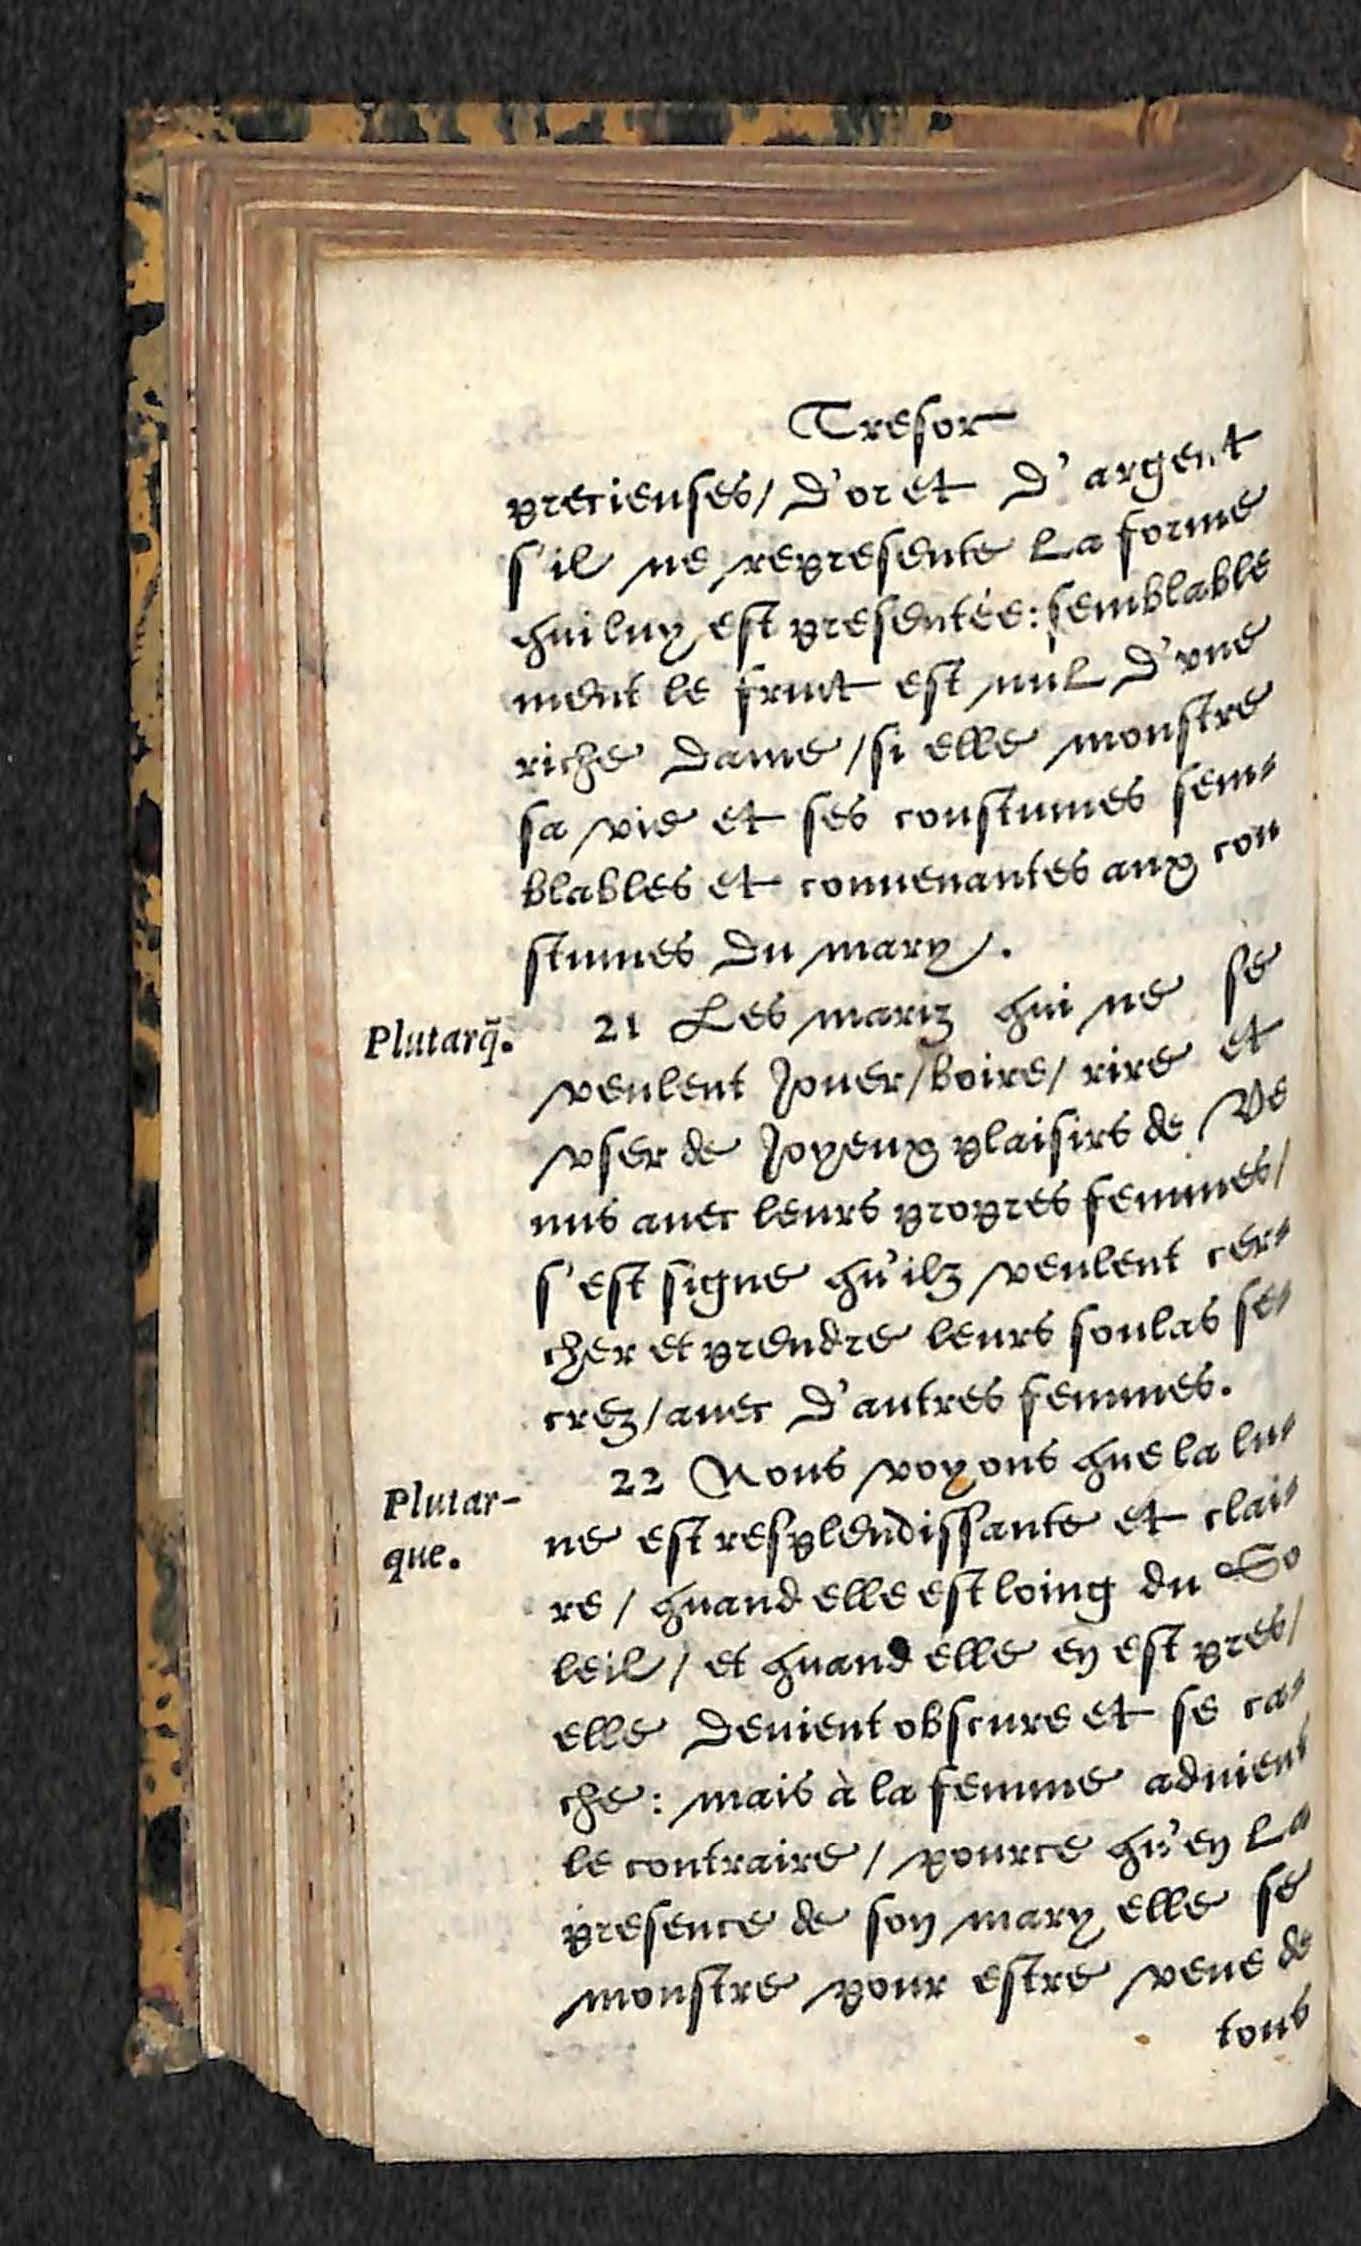 Tresor
precieuses/ d'or et d'argent
s'il ne represente la forme
qui luy est presentée: semblable
ment le fruit est nul d'vne
riche dame/ si elle monstre
sa vie et ses coustumes sem-
blables et conuenantes aux cou
stumes du mary.
Plutarq̃. 21 Les mariz qui ne se
veulent jouer/ boire/ rire et
vser de joyeux plaisirs de Ve
nus auec leurs propres femmes/
s'est signe qu'ilz veulent cer-
cher et prendre leurs soulas se-
crez/ auec d'autres femmes.
Plutar- 22 Nous voyons que la lu-
que. ne est resplendissante et clai-
re/ quand elle est loing du So
leil/ et quand elle en est pres/
elle deuient obscure et se ca-
che: mais à la femme aduient
le contraire/ pource qu'en la
presence de son mary elle se
monstre pour estre veue de
tous